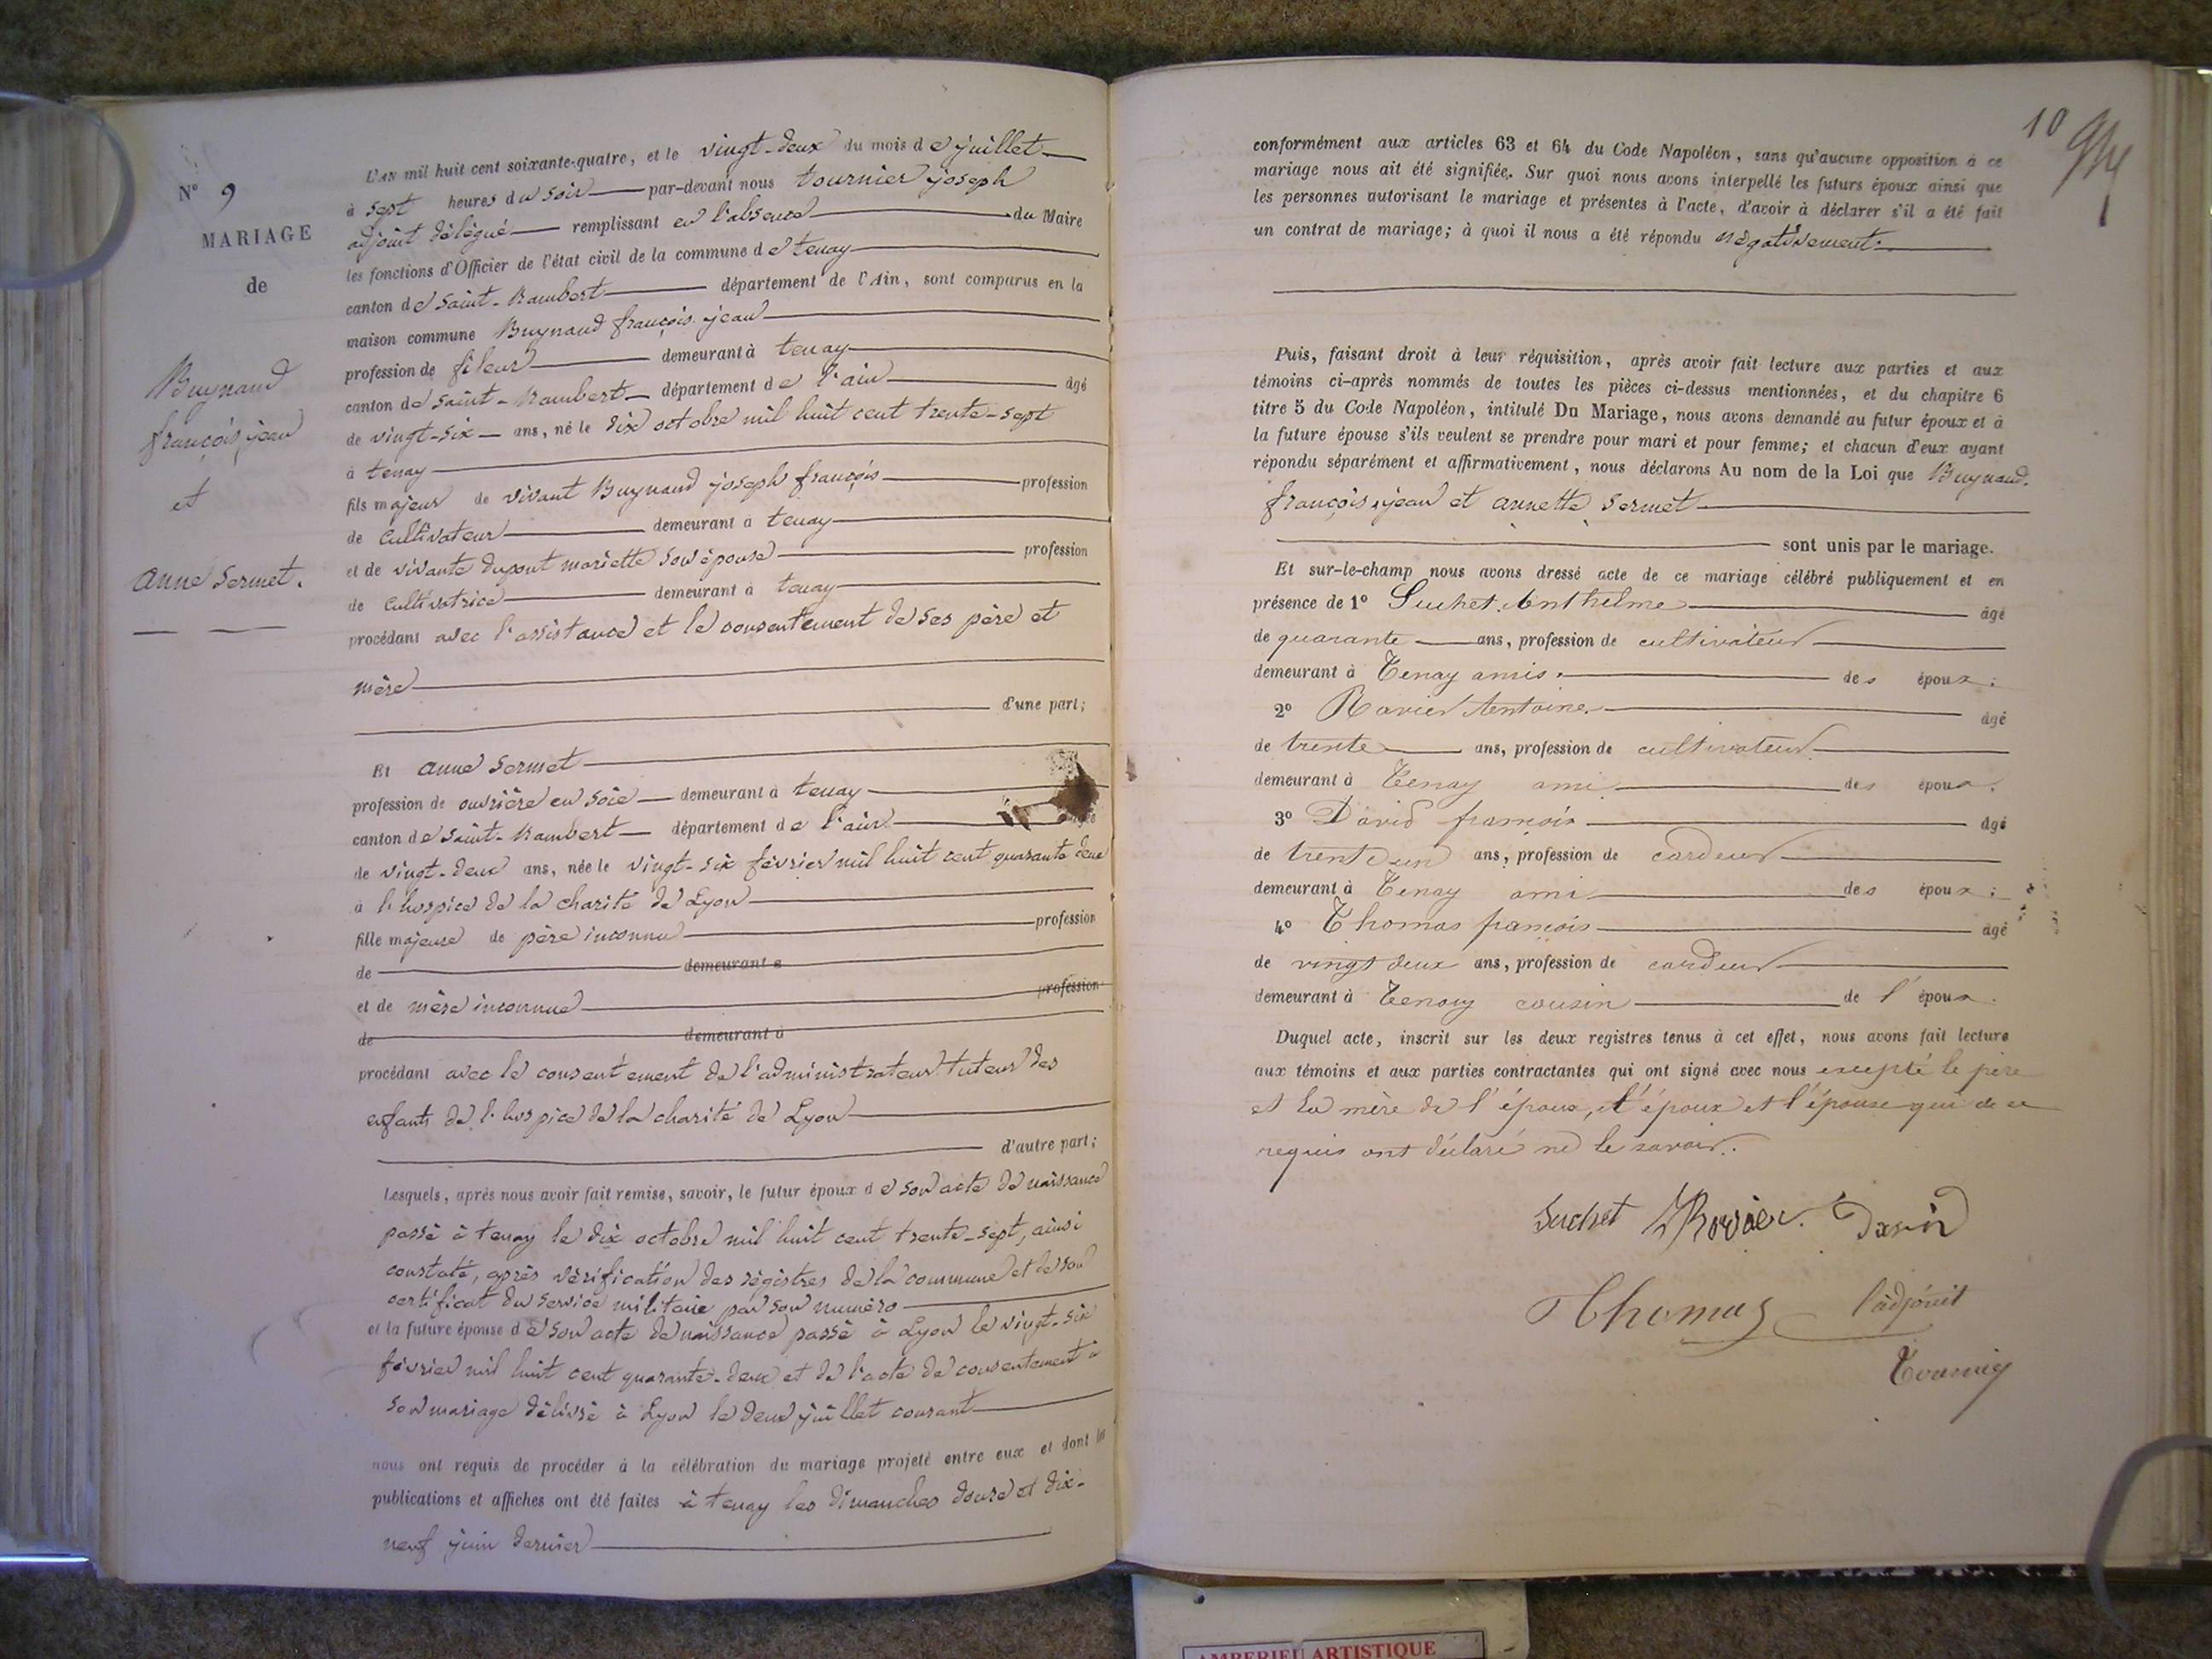 N° 9
MARIAGE
de
Buynand
françois jean
et
anne Sermet.
L'AN mil huit cent soixante-quatre, et le vingt-deux du mois de juillet
à sept heures du soir par-devant nous tournier joseph
adjoint délégué remplissant en l'absence du Maire
les fonctions d'Officier de l'état civil de la commune de tenay
canton de saint-Rambert département de l'Ain, sont comparus en la
maison commune Buynand françois jean
profession de fileur demeurant à tenay
canton de saint-Rambert département de l'ain âgé
de vingt-six ans, né le dix octobre mil huit cent trente-sept
à tenay
fils majeur de vivant Buynand joseph françois profession
de cultivateur demeurant à tenay
et de vivante dupont mariette son épouse profession
de cultivatrice demeurant à tenay
procédant avec l'assistance et le consentement de ses père et
mère
d'une part;
Et anne sermet
profession de ouvrière en soie demeurant à tenay
canton de saint-Rambert département de l'ain
de vingt-deux ans, née le vingt-six février mil huit cent quarante deux
à l'hospice de la charité de Lyon
fille majeure de père inconnu profession
de demeurant à
et de mère inconnue profession
de demeurant à
procédant avec le consentement de l'administrateur tuteur des
enfants de l'hospice de la charité de Lyon
d'autre part;
Lesquels, après nous avoir fait remise, savoir, le futur époux de son acte de naissance
passé à tenay le dix octobre mil huit cent trente-sept, ainsi
constaté, après vérification des régistres de la commune et de son
certificat du service militaire par son numéro
et la future épouse de son acte de naissance passé à Lyon le vingt-six
février mil huit cent quarante-deux et de l'acte de consentement à
son mariage délivré à Lyon le deux juillet courant
nous ont requis de procéder à la célébration du mariage projeté entre eux et dont les
publications et affiches ont été faites à tenay les dimanches douze et dix-
neuf juin dernier
10
conformément aux articles 63 et 64 du Code Napoléon, sans qu'aucune opposition à ce
mariage nous ait été signifiée. Sur quoi nous avons interpellé les futurs époux ainsi que
les personnes autorisant le mariage et présentes à l'acte, d'avoir à déclarer s'il a été fait
un contrat de mariage; à quoi il nous a été répondu négativement.
Puis, faisant droit à leur réquisition, après avoir fait lecture aux parties et aux
témoins ci-après nommés de toutes les pièces ci-dessus mentionnées, et du chapitre 6
titre 5 du Code Napoléon, intitulé Du Mariage, nous avons demandé au futur époux et à
la future épouse s'ils veulent se prendre pour mari et pour femme; et chacun d'eux ayant
répondu séparément et affirmativement, nous déclarons Au nom de la Loi que Buynand.
françois jean et annette Sermet
sont unis par le mariage.
Et sur-le-champ nous avons dressé acte de ce mariage célébré publiquement et en
présence de 1° Suchet Anthelme âgé
de quarante ans, profession de cultivateur
demeurant à Tenay amis. des époux;
2° Ravier Antoine. âgé
de trente ans, profession de cultivateur
demeurant à Tenay ami des époux.
3° David françois âgé
de trent'un ans, profession de cardeur
demeurant à Tenay ami des époux;
4° Thomas françois âgé
de vingt deux ans, profession de cardeur
demeurant à Tenay cousin de l'époux.
Duquel acte, inscrit sur les deux registres tenus à cet effet, nous avons fait lecture
aux témoins et aux parties contractantes qui ont signé avec nous excepté le père
et la mère de l'époux, et l'époux et l'épouse qui de ce
requis ont déclaré ne le savoir.
Suchet Ravier. David
Thomas l'adjoint
Tournier
AMBERIEU ARTISTIQUE